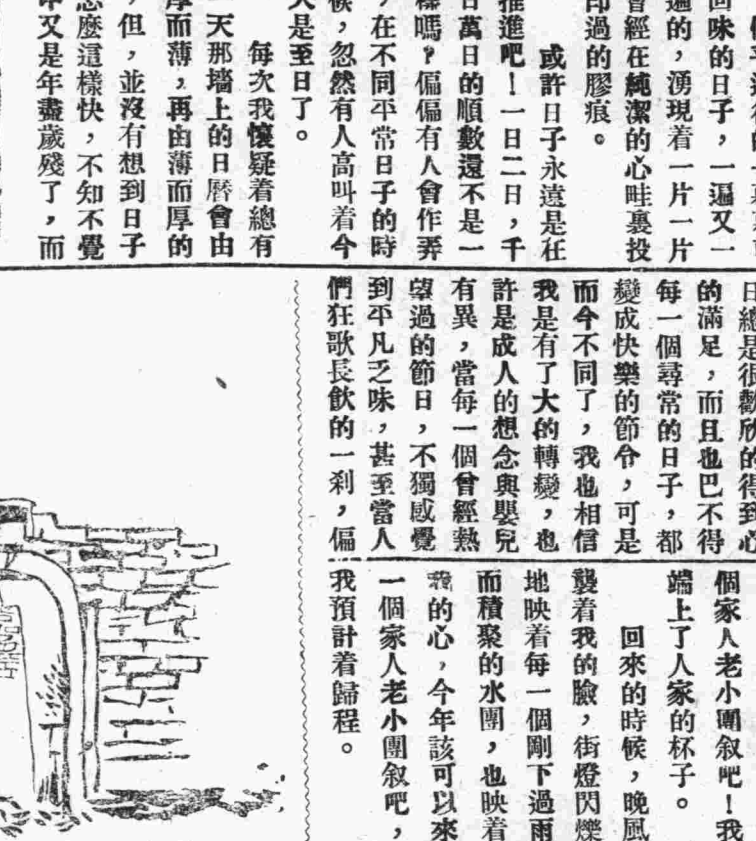 回味的日子，一遍又一
遍的，湧現着一片一片
曾經在純潔的心畦裏投
印過的膠痕。
或許日子永遠是在
推進吧！一日二日，千
日萬日的順數還不是一
樣嗎？偏偏有人會作弄
，在不同平常日子的時
候，忽然有人高叫着今
天是至日了。
每次我懷疑着總有
一天那墻上的日曆會由
厚而薄，再由薄而厚的
，但，並沒有想到日子
怎麼這樣快，不知不覺
又是年盡歲殘了，而
日總是很歡欣的得到心
的滿足，而且也巴不得
每一個尋常的日子，都
變成快樂的節令，可是
而今不同了，我也相信
我是有了大的轉變，也
許是成人的想念與嬰兒
有異，當每一個曾經熱
望過的節日，不獨感覺
到平凡乏味，甚至當人
們狂歌長飲的一刹，偏
個家人老小團叙吧！我
端上了人家的杯子。
回來的時候，晚風
襲着我的臉，街燈閃爍
地映着每一個剛下過雨
而積聚的水團，也映着
我的心，今年該可以來
一個家人老小團叙吧，
我預計着歸程。